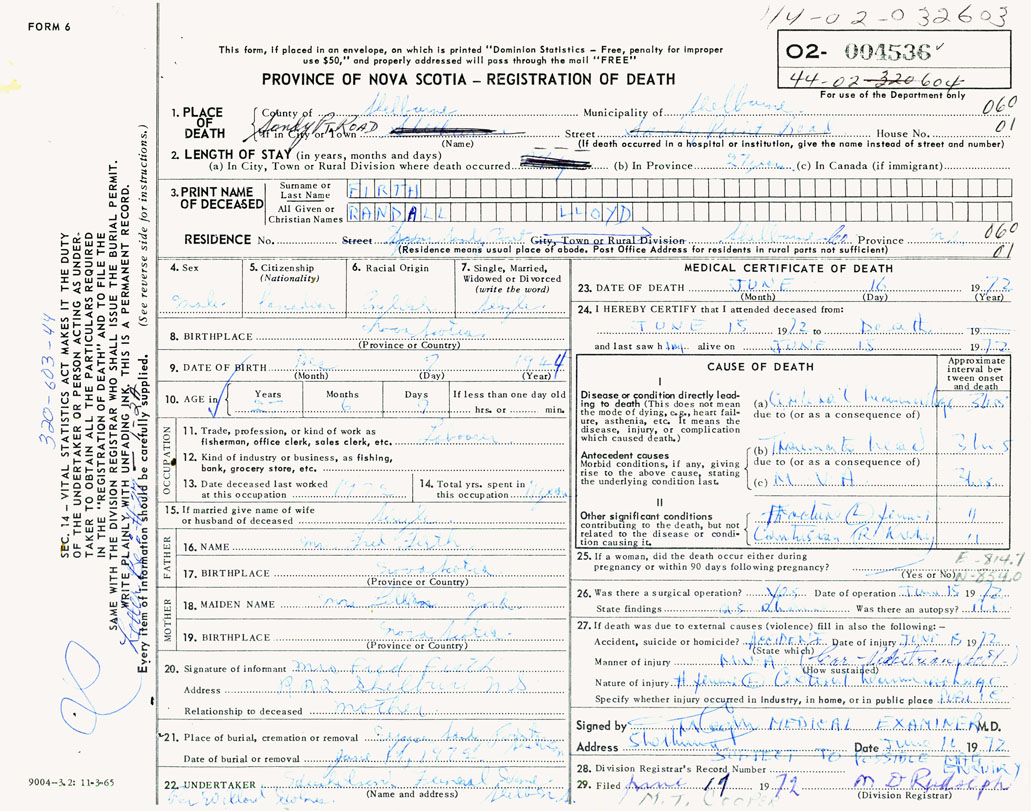 FORM 6
44-02-032603
This form, if placed in an envelope, on which is printed "Dominion Statistics – Free, penalty for improper
use $50," and properly addressed will pass through the mail "FREE"
02- 004536
44-02-320604
For use of the Department only
PROVINCE OF NOVA SCOTIA – REGISTRATION OF DEATH
1. PLACE OF DEATH
County of Shelburne Municipality of Shelburne 060
Sandy Pt. ROAD
If in City or Town Street House No. 01
(Name) (If death occurred in a hospital or institution, give the name instead of street and number)
2. LENGTH OF STAY (in years, months and days)
(a) In City, Town or Rural Division where death occurred (b) In Province 27 years (c) In Canada (if immigrant)
3. PRINT NAME OF DECEASED
Surname or Last Name FIRTH
All Given or Christian Names RANDALL LLOYD
RESIDENCE No. Street Sandy Point City, Town or Rural Division Shelburne Co Province N.S. 060
(Residence means usual place of abode. Post Office Address for residents in rural parts not sufficient) 01
4. Sex Male
5. Citizenship (Nationality) Canadian
6. Racial Origin English
7. Single, Married, Widowed or Divorced (write the word) Single
8. BIRTHPLACE Nova Scotia
(Province or Country)
9. DATE OF BIRTH Dec 7 1944
(Month) (Day) (Year)
10. AGE in Years Months Days If less than one day old
27 6 hrs. or min.
OCCUPATION
11. Trade, profession, or kind of work as
fisherman, office clerk, sales clerk, etc. Labourer
12. Kind of industry or business, as fishing,
bank, grocery store, etc.
13. Date deceased last worked
at this occupation 1972
14. Total yrs. spent in
this occupation
15. If married give name of wife
or husband of deceased Single
FATHER
16. NAME Mr Fred Firth
17. BIRTHPLACE Nova Scotia
(Province or Country)
MOTHER
18. MAIDEN NAME Mrs Lillian
19. BIRTHPLACE Nova Scotia
(Province or Country)
20. Signature of informant Mrs Fred Firth
Address RR2 Shelburne N S
Relationship to deceased mother
21. Place of burial, cremation or removal Sandy Point
Date of burial or removal June 19, 1972
22. UNDERTAKER Funeral Home
(Name and address)
MEDICAL CERTIFICATE OF DEATH
23. DATE OF DEATH JUNE 16 1972
(Month) (Day) (Year)
24. I HEREBY CERTIFY that I attended deceased from:
JUNE 15 1972 to Death 19
and last saw him alive on JUNE 15 1972
CAUSE OF DEATH
Approximate interval between onset and death
I
Disease or condition directly leading to death (This does not mean
the mode of dying, e.g., heart failure, asthenia, etc. It means the
disease, injury, or complication
which caused death.)
(a) Cerebral hemorrhage 3 hrs
due to (or as a consequence of)
Antecedent causes
Morbid conditions, if any, giving
rise to the above cause, stating
the underlying condition last.
(b) Traumatic head 3 hrs
due to (or as a consequence of)
(c) M V A 3 hrs.
II
Other significant conditions
contributing to the death, but not
related to the disease or condition
causing it.
Fracture (L) femur "
Contusion (R) kidney "
25. If a woman, did the death occur either during
pregnancy or within 90 days following pregnancy?
(Yes or No)
E-814.7
N-854.0
26. Was there a surgical operation? Yes Date of operation June 15 1972
State findings as above Was there an autopsy? No
27. If death was due to external causes (violence) fill in also the following: –
Accident, suicide or homicide? ACCIDENT Date of injury JUNE 15 1972
(State which)
Manner of injury M.V.A. (Car-Pedestrian)
(How sustained)
Nature of injury # femur (L) Cerebral hemorrhage
Specify whether injury occurred in Industry, in home, or in public place
Signed by MEDICAL EXAMINER M.D.
Address Shelburne Date June 16 1972
SUBJECT TO POSSIBLE ENQUIRY
28. Division Registrar's Record Number
29. Filed June 19 1972
(Division Registrar)
M.T. COOPER
SEC. 14 – VITAL STATISTICS ACT MAKES IT THE DUTY
OF THE UNDERTAKER OR PERSON ACTING AS UNDER-
TAKER TO OBTAIN ALL THE PARTICULARS REQUIRED
IN THE "REGISTRATION OF DEATH" AND TO FILE THE
SAME WITH THE DIVISION REGISTRAR WHO SHALL ISSUE THE BURIAL PERMIT.
WRITE PLAINLY WITH UNFADING INK, THIS IS A PERMANENT RECORD.
Every item of information should be carefully supplied. (See reverse side for instructions.)
320-603-44
9004-3.2: 11-3-65